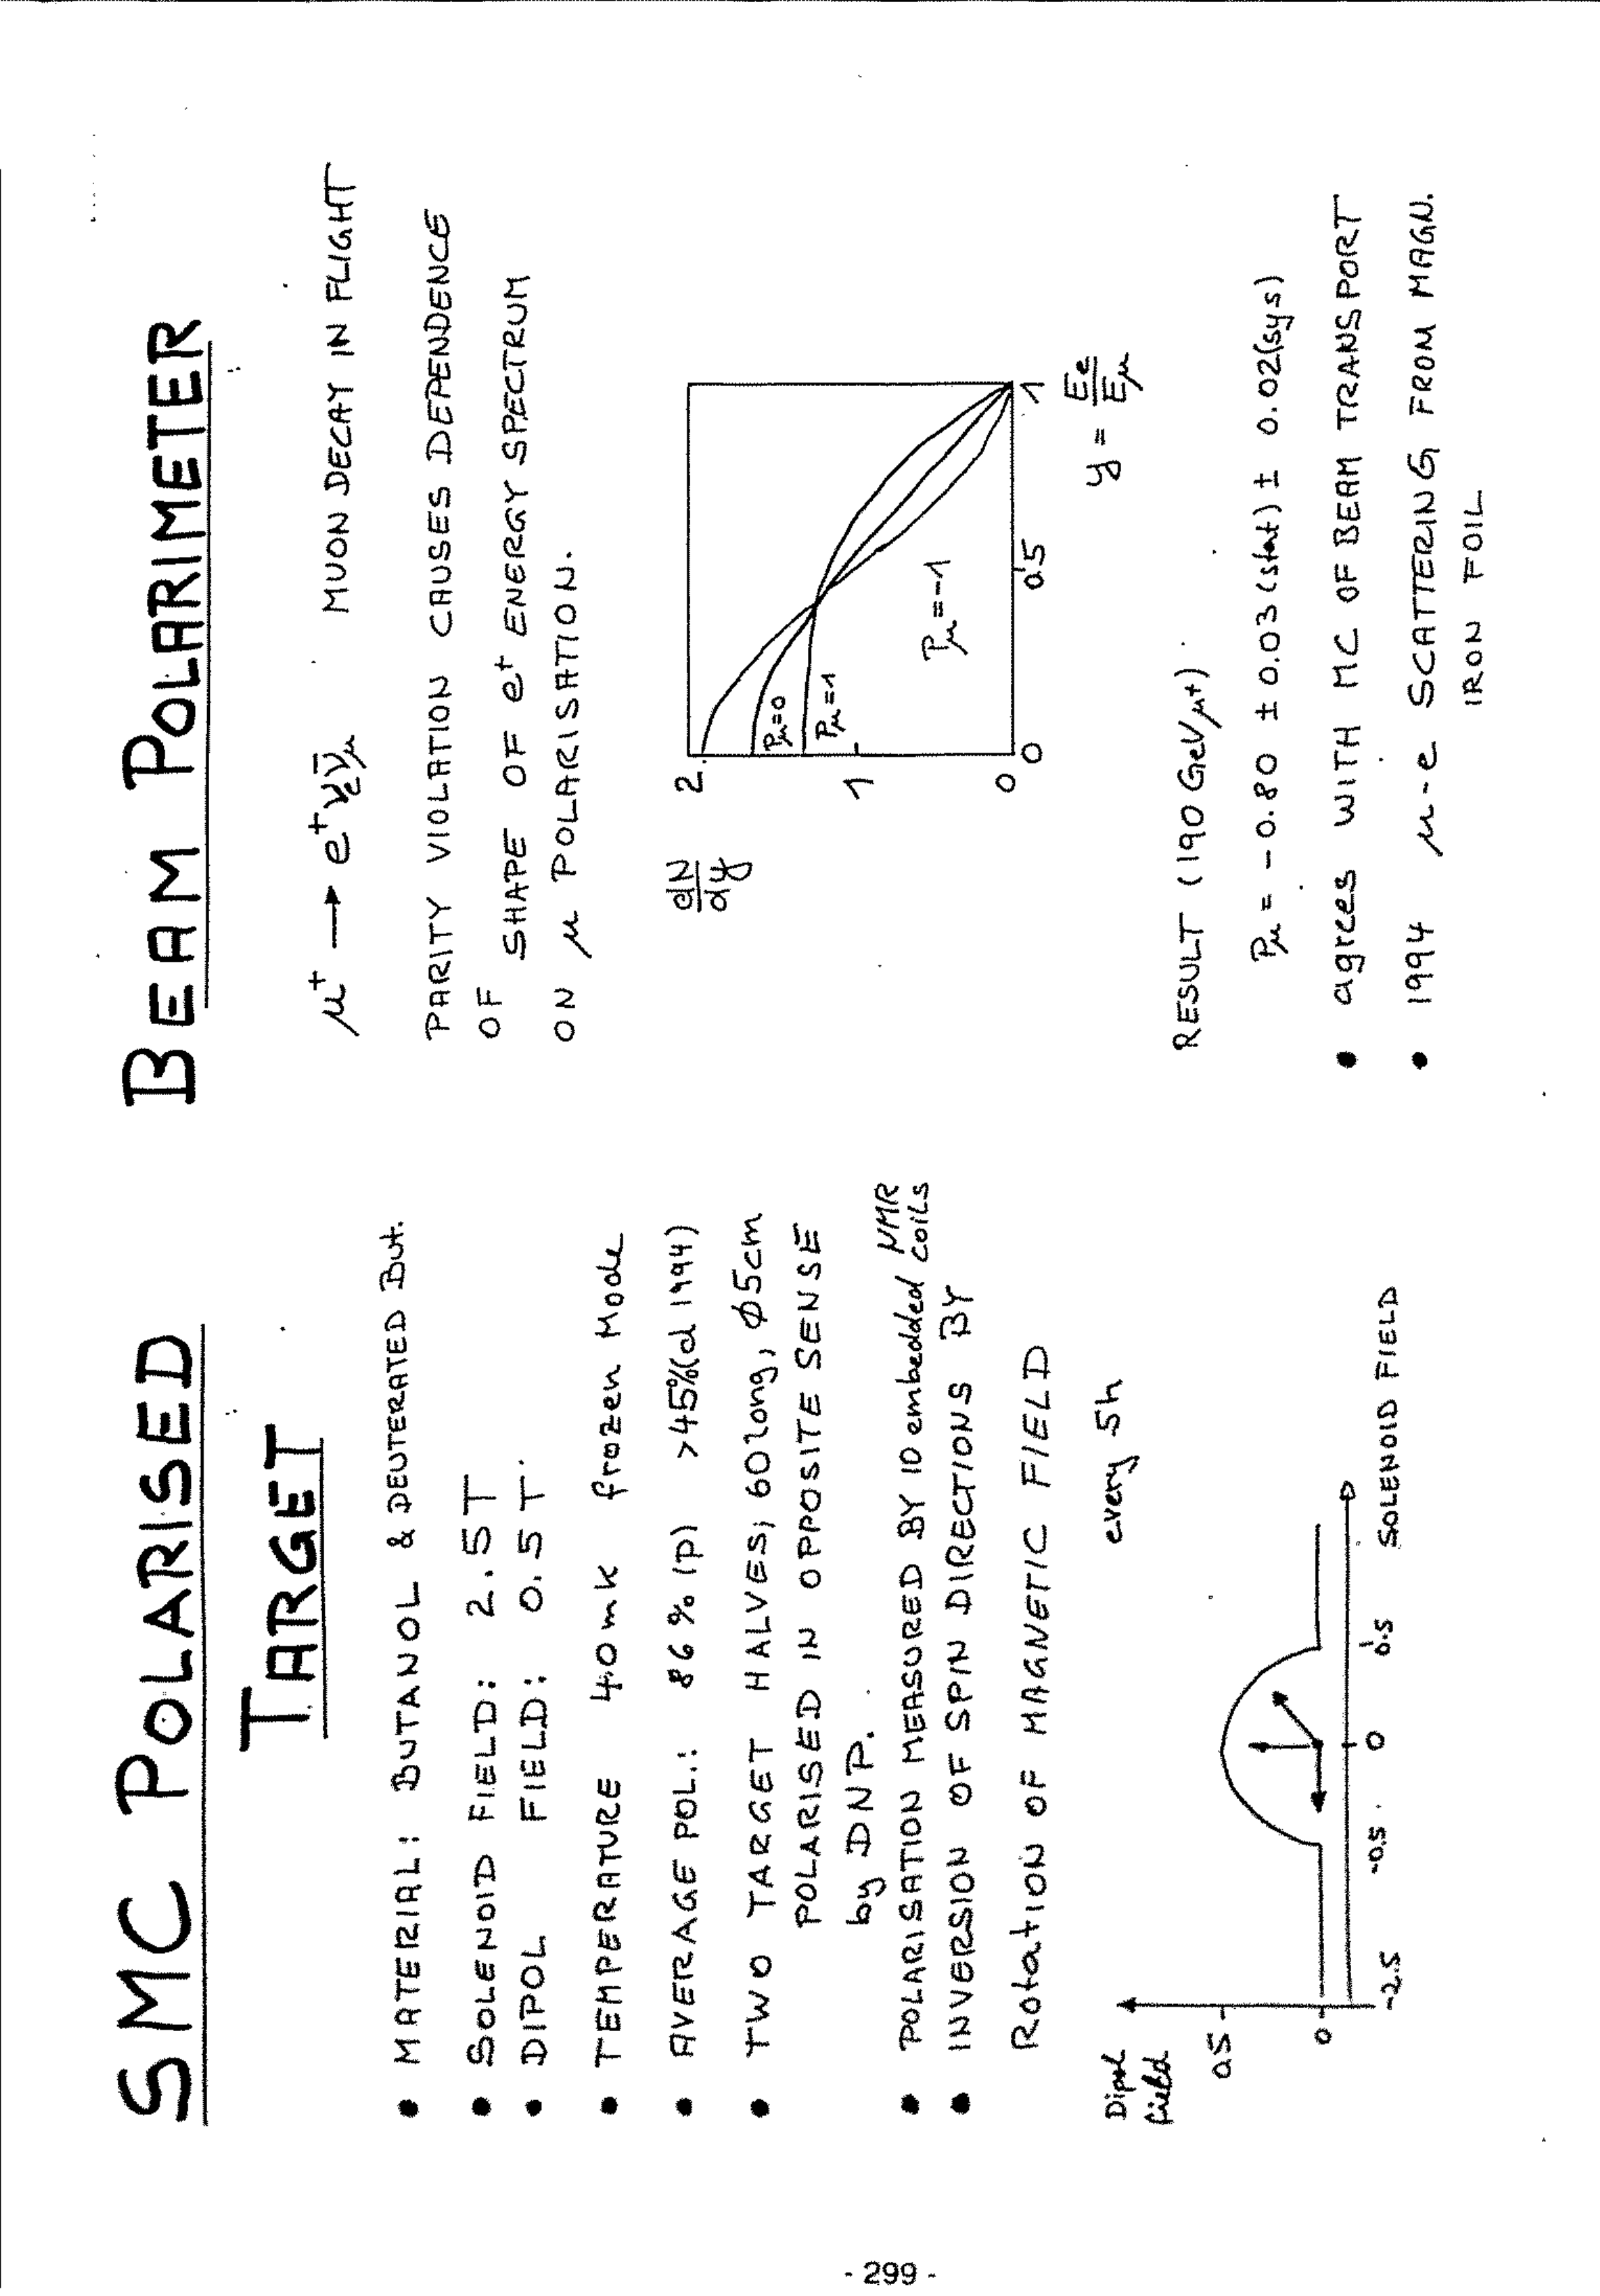 SMC POLARISED
TARGET
• MATERIAL: BUTANOL & DEUTERATED But.
• SOLENOID FIELD: 2.5T
• DIPOL FIELD: 0.5T
• TEMPERATURE 40mK frozen Mode
• AVERAGE POL.: 86% (p) >45%(d 1994)
• TWO TARGET HALVES; 60 long, Ø5cm
POLARISED IN OPPOSITE SENSE
by DNP.
• POLARISATION MEASURED BY 10 embedded NMR
coils
• INVERSION OF SPIN DIRECTIONS BY
Rotation OF MAGNETIC FIELD
every 5h
Dipol
field
0.5
0
-2.5
-0.5
0
0.5
SOLENOID FIELD
BEAM POLARIMETER
μ⁺ → e⁺ νₑ ν̄_μ MUON DECAY IN FLIGHT
PARITY VIOLATION CAUSES DEPENDENCE
OF
SHAPE OF e⁺ ENERGY SPECTRUM
ON μ POLARISATION.
dN/dy
2
1
0
Pμ=0
Pμ=1
Pμ=-1
0
0.5
1
y = Ee/Eμ
RESULT (190 GeV μ+)
Pμ = -0.80 ± 0.03 (stat) ± 0.02(sys)
• agrees WITH MC OF BEAM TRANSPORT
• 1994 μ-e SCATTERING FROM MAGN.
IRON FOIL
- 299 -